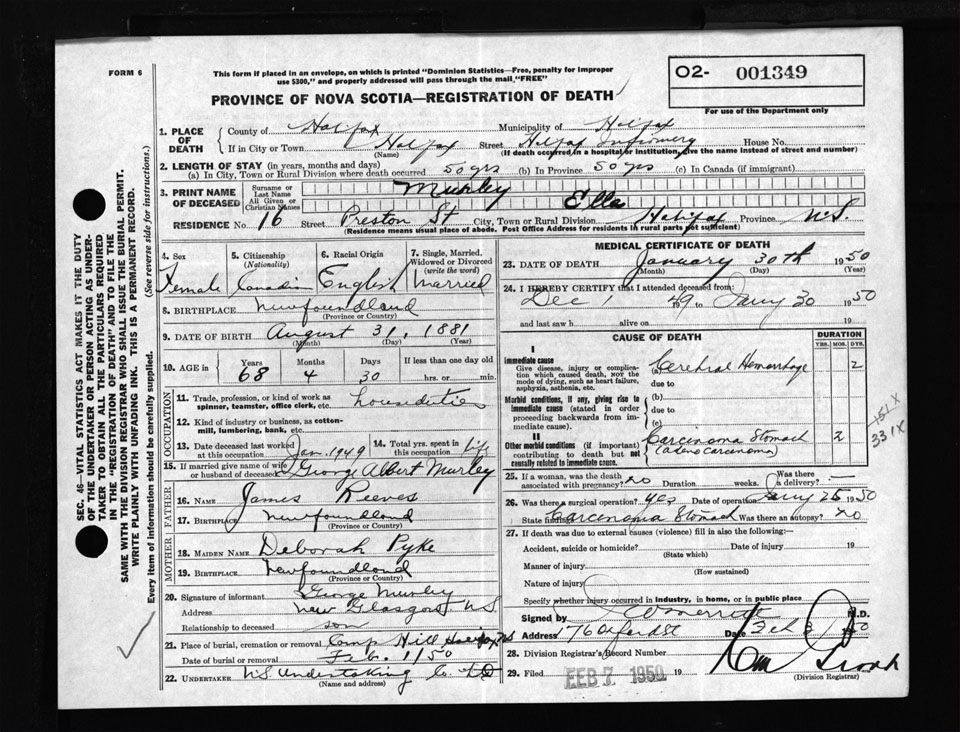 FORM 6
This form if placed in an envelope, on which is printed "Dominion Statistics—Free, penalty for improper
use $300," and properly addressed will pass through the mail "FREE"
O2- 001349
For use of the Department only
PROVINCE OF NOVA SCOTIA—REGISTRATION OF DEATH
1. PLACE OF DEATH
County of Halifax Municipality of Halifax
If in City or Town Halifax Street Halifax Infirmary House No.
(Name) (If death occurred in a hospital or institution, give the name instead of street and number)
2. LENGTH OF STAY (in years, months and days)
(a) In City, Town or Rural Division where death occurred 50 yrs (b) In Province 50 yrs (c) In Canada (if immigrant)
3. PRINT NAME OF DECEASED
Surname or Last Name Murley
All Given or Christian Names Ella
RESIDENCE No. 16 Street Preston St City, Town or Rural Division Halifax Province N.S.
(Residence means usual place of abode. Post Office Address for residents in rural parts not sufficient)
4. Sex
Female
5. Citizenship
(Nationality)
Canadian
6. Racial Origin
English
7. Single, Married, Widowed or Divorced
(write the word)
Married
8. BIRTHPLACE Newfoundland
(Province or Country)
9. DATE OF BIRTH August 31, 1881
(Month) (Day) (Year)
10. AGE in Years Months Days If less than one day old
68 4 30 hrs. or min.
OCCUPATION
11. Trade, profession, or kind of work as spinner, teamster, office clerk, etc. houseduties
12. Kind of industry or business, as cotton-mill, lumbering, bank, etc.
13. Date deceased last worked at this occupation Jan. 1949
14. Total yrs. spent in this occupation Life
15. If married give name of wife or husband of deceased George Albert Murley
FATHER
16. NAME James Reeves
17. BIRTHPLACE Newfoundland
(Province or Country)
MOTHER
18. MAIDEN NAME Deborah Pyke
19. BIRTHPLACE Newfoundland
(Province or Country)
20. Signature of informant George Murley
Address New Glasgow N.S.
Relationship to deceased son
21. Place of burial, cremation or removal Camp Hill Halifax NS
Date of burial or removal Feb. 1/50
22. UNDERTAKER N.S. Undertaking Co. LTD
(Name and address)
MEDICAL CERTIFICATE OF DEATH
23. DATE OF DEATH January 30th 1950
(Month) (Day) (Year)
24. I HEREBY CERTIFY that I attended deceased from:
Dec 1 49 to Jany 30 1950
and last saw h alive on 19
CAUSE OF DEATH
DURATION
YRS. MOS. DYS.
I
Immediate cause
Give disease, injury or complication which caused death, NOT the mode of dying, such as heart failure, asphyxia, asthenia, etc.
(a) Cerebral Hemorrhage 2
due to
Morbid conditions, if any, giving rise to immediate cause (stated in order proceeding backwards from immediate cause).
(b)
due to
(c)
II
Other morbid conditions (if important) contributing to death but not causally related to immediate cause.
Carcinoma Stomach 2
(adenocarcinoma)
151X
331X
25. If a woman, was the death associated with pregnancy? no Duration weeks. Was there a delivery?
26. Was there a surgical operation? yes Date of operation Jany 25 1950
State findings Carcinoma Stomach Was there an autopsy? no
27. If death was due to external causes (violence) fill in also the following:
Accident, suicide or homicide? Date of injury 19
(State which)
Manner of injury
(How sustained)
Nature of injury
Specify whether injury occurred in industry, in home, or in public place
Signed by M.D.
Address Date Feb 50
28. Division Registrar's Record Number
29. Filed FEB 7 1950 19
(Division Registrar)
SEC. 46—VITAL STATISTICS ACT MAKES IT THE DUTY
OF THE UNDERTAKER OR PERSON ACTING AS UNDERTAKER TO OBTAIN ALL THE PARTICULARS REQUIRED
IN THE "REGISTRATION OF DEATH" AND TO FILE THE
SAME WITH THE DIVISION REGISTRAR WHO SHALL ISSUE THE BURIAL PERMIT.
WRITE PLAINLY WITH UNFADING INK. THIS IS A PERMANENT RECORD.
Every item of information should be carefully supplied. (See reverse side for instructions.)